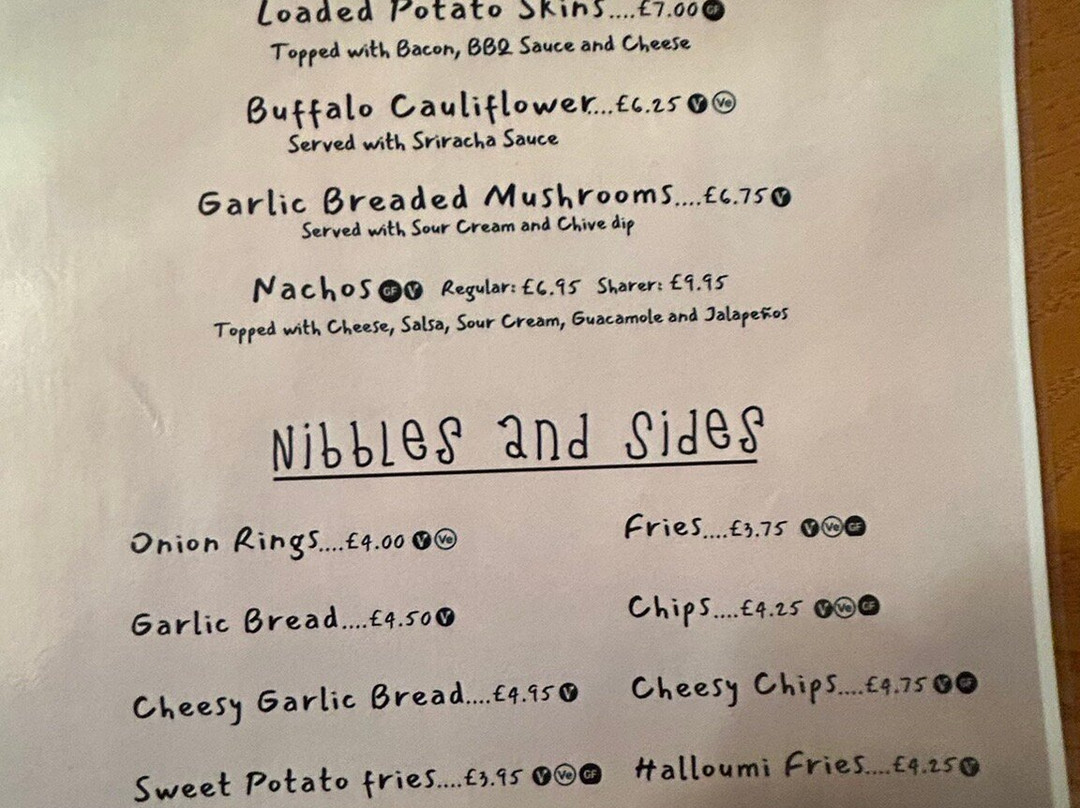 Loaded Potato Skins....£7.00 GF
Topped with Bacon, BBQ Sauce and Cheese
Buffalo Cauliflower....£6.25 V Ve
Served with Sriracha Sauce
Garlic Breaded Mushrooms....£6.75 V
Served with Sour Cream and Chive dip
Nachos GF V Regular: £6.95 Sharer: £9.95
Topped with Cheese, Salsa, Sour Cream, Guacamole and Jalapeños
Nibbles and Sides
Onion Rings....£4.00 V Ve
Fries....£3.75 V Ve GF
Garlic Bread....£4.50 V
Chips....£4.25 V Ve GF
Cheesy Garlic Bread....£4.95 V
Cheesy Chips....£4.75 V GF
Sweet Potato fries....£3.95 V Ve GF
Halloumi Fries....£4.25 V